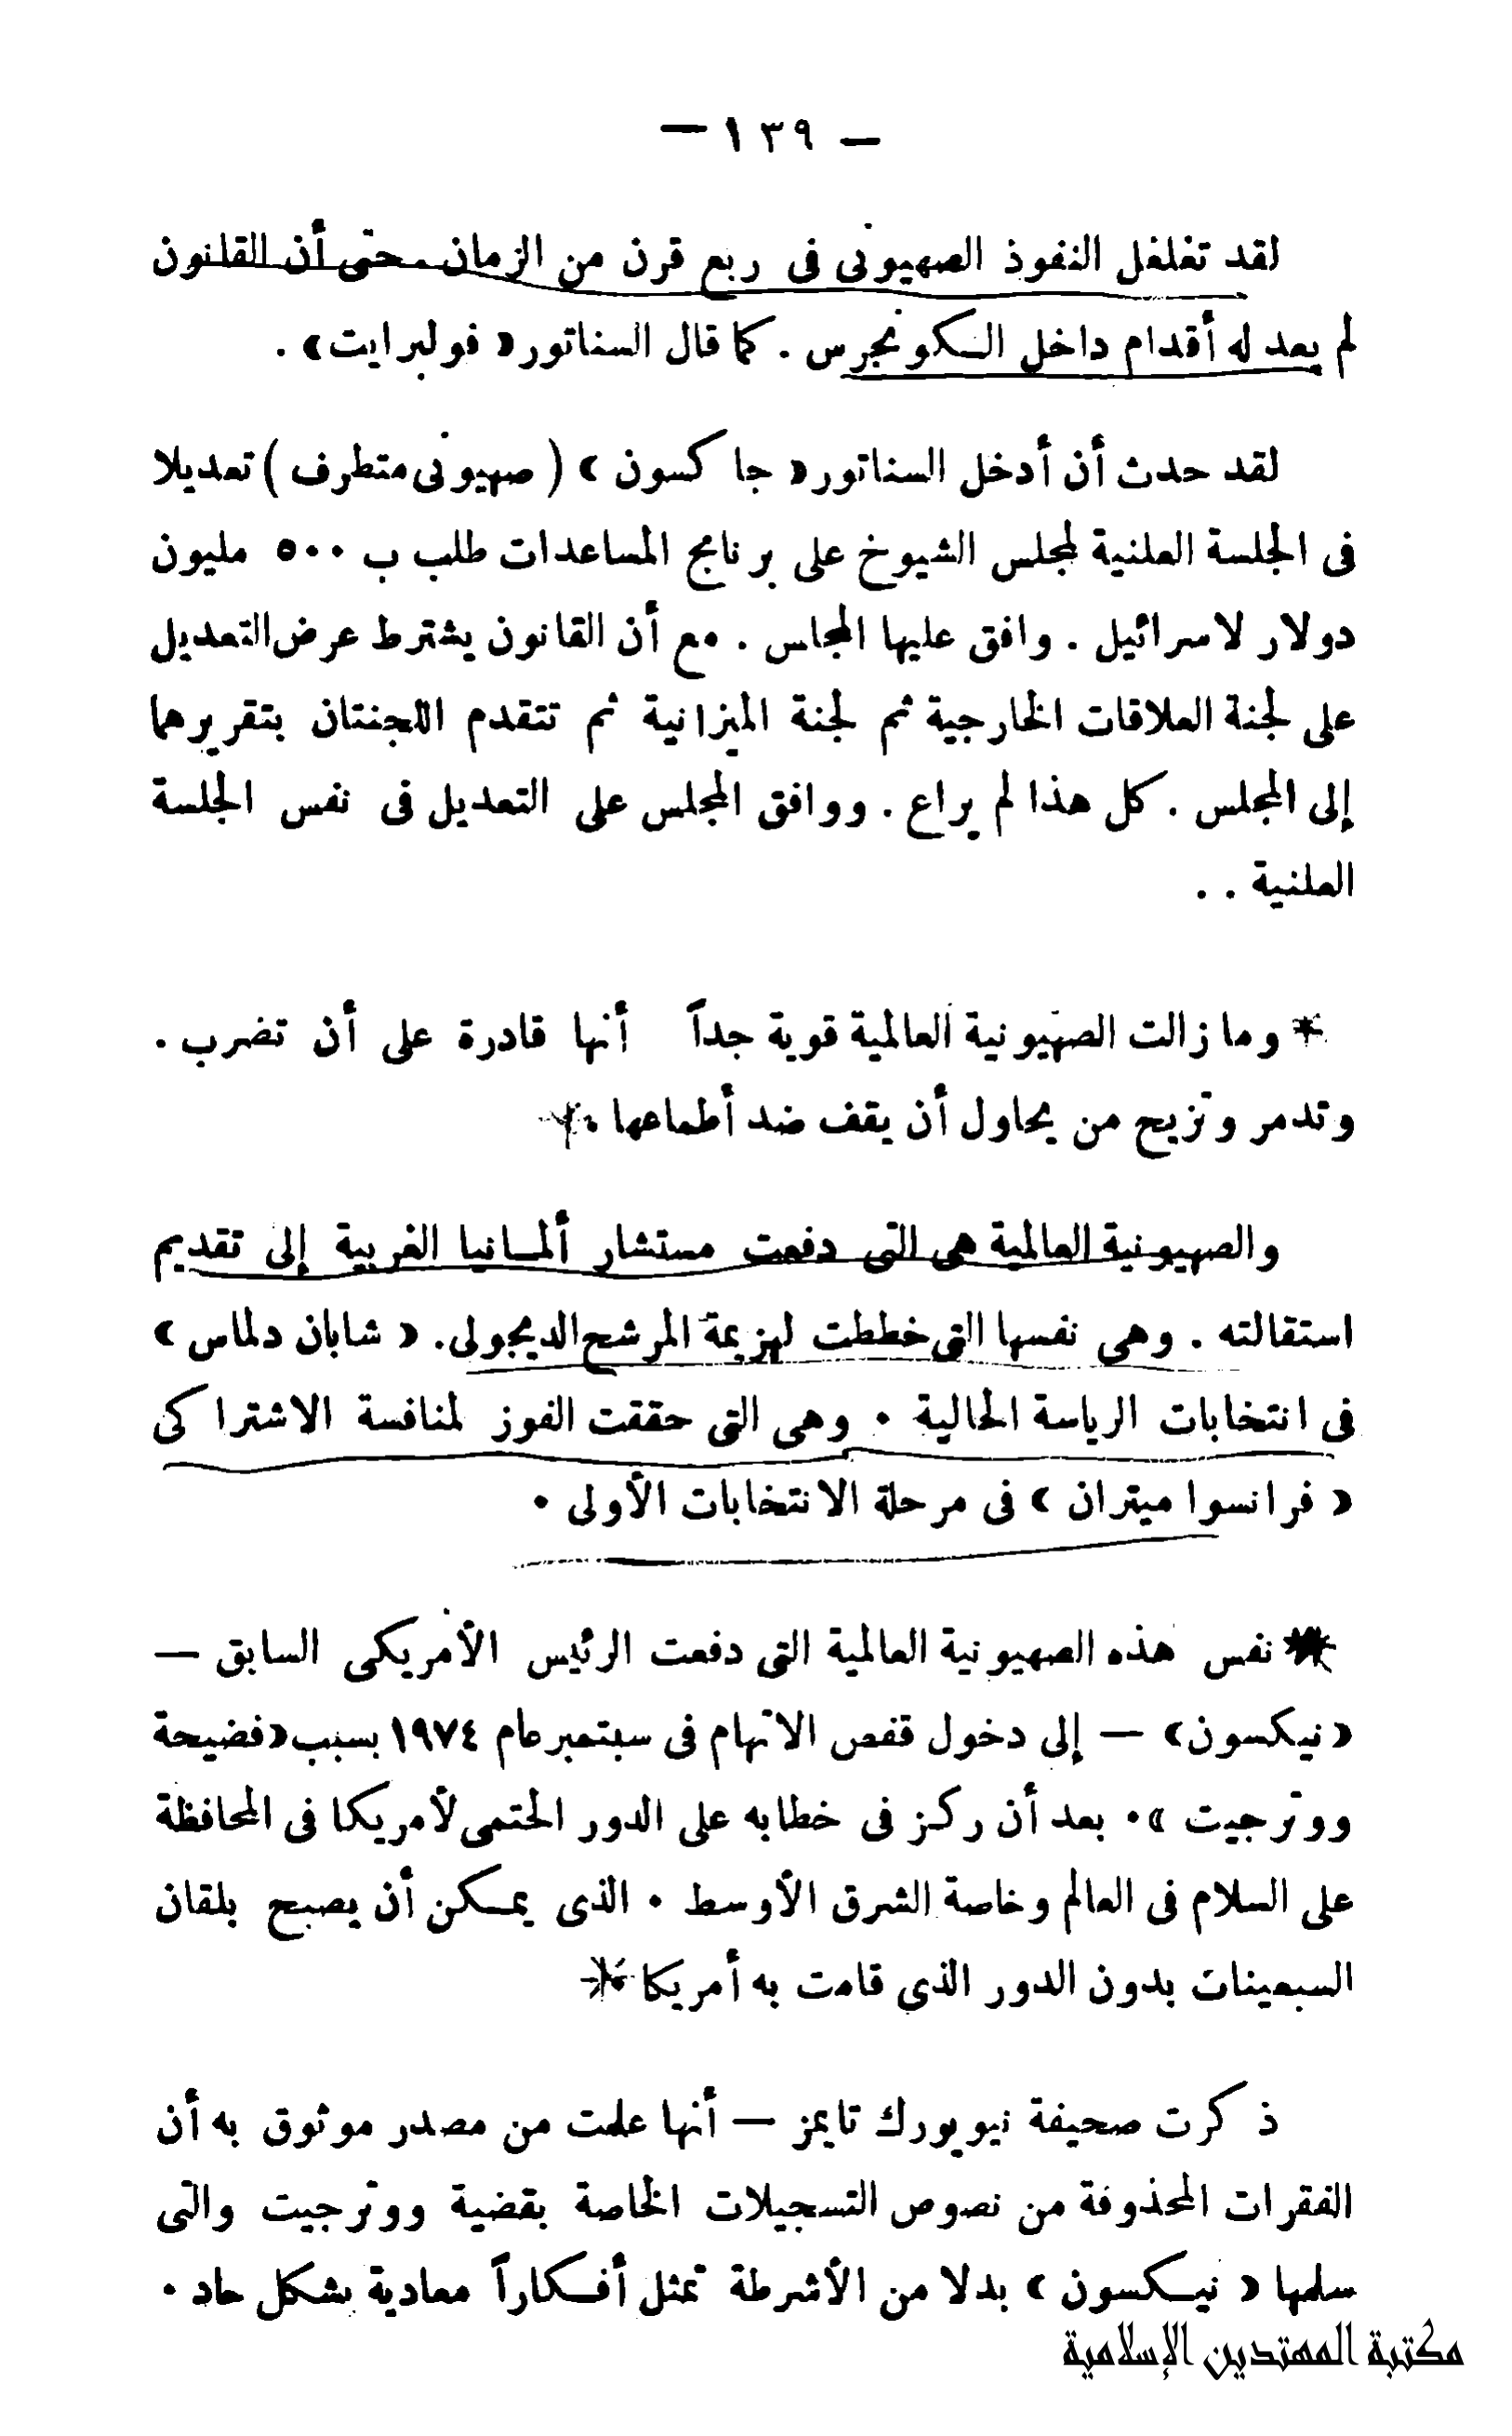 — ١٣٩ —
لقد تغلغل النفوذ الصهيونى فى ربع قرن من الزمان. حتى أن القانون
لم يعد له أقدام داخل الكونجرس . كما قال السناتور « فولبرايت» .
لقد حدث أن أدخل السناتور « جاكسون » ( صهيونى متطرف ) تعديلا
فى الجلسة العلنية لمجلس الشيوخ على برنامج المساعدات طلب ب ٥٠٠ مليون
دولار لاسرائيل . وافق عليها المجلس . مع أن القانون يشترط عرض التعديل
على لجنة العلاقات الخارجية ثم لجنة الميزانية ثم تتقدم اللجنتان بتقريرهما
إلى المجلس . كل هذا لم يراع . ووافق المجلس على التعديل فى نفس الجلسة
العلنية . .
* وما زالت الصهيونية العالمية قوية جداً أنها قادرة على أن تضرب .
وتدمر وتزيح من يحاول أن يقف ضد أطماعها .*
والصهيونية العالمية هى التى دفعت مستشار ألمـانيا الغربية إلى تقديم
استقالته . وهى نفسها التى خططت لهزيمة المرشح الديجولى. « شابان دلماس »
فى انتخابات الرياسة الحالية . وهى التى حققت الفوز لمنافسة الاشتراكى
« فرانسوا ميتران » فى مرحلة الانتخابات الأولى .
* نفس هذه الصهيونية العالمية التى دفعت الرئيس الأمريكى السابق —
«نيكسون» — إلى دخول قفص الاتهام فى سبتمبر عام ١٩٧٤ بسبب «فضيحة
ووترجيت ». بعد أن ركز فى خطابه على الدور الحتمى لأمريكا فى المحافظة
على السلام فى العالم وخاصة الشرق الأوسط . الذى يمـكن أن يصبح بلقان
السبعينات بدون الدور الذى قامت به أمريكا .*
ذكرت صحيفة نيويورك تايمز — أنها علمت من مصدر موثوق به أن
الفقرات المحذوفة من نصوص التسجيلات الخاصة بقضية ووترجيت والتى
سلمها « نيـكسون » بدلا من الأشرطة تمثل أفـكاراً معادية بشكل حاد .
مكتبة المهتدين الإسلامية